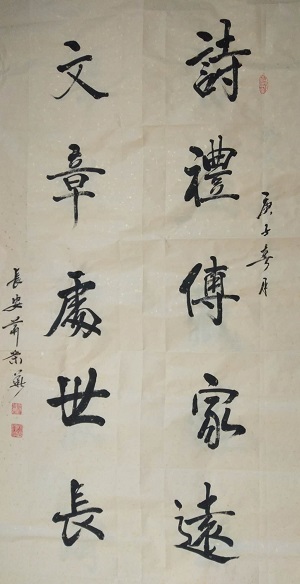 詩禮傳家遠
庚子春月
文章處世長
長安